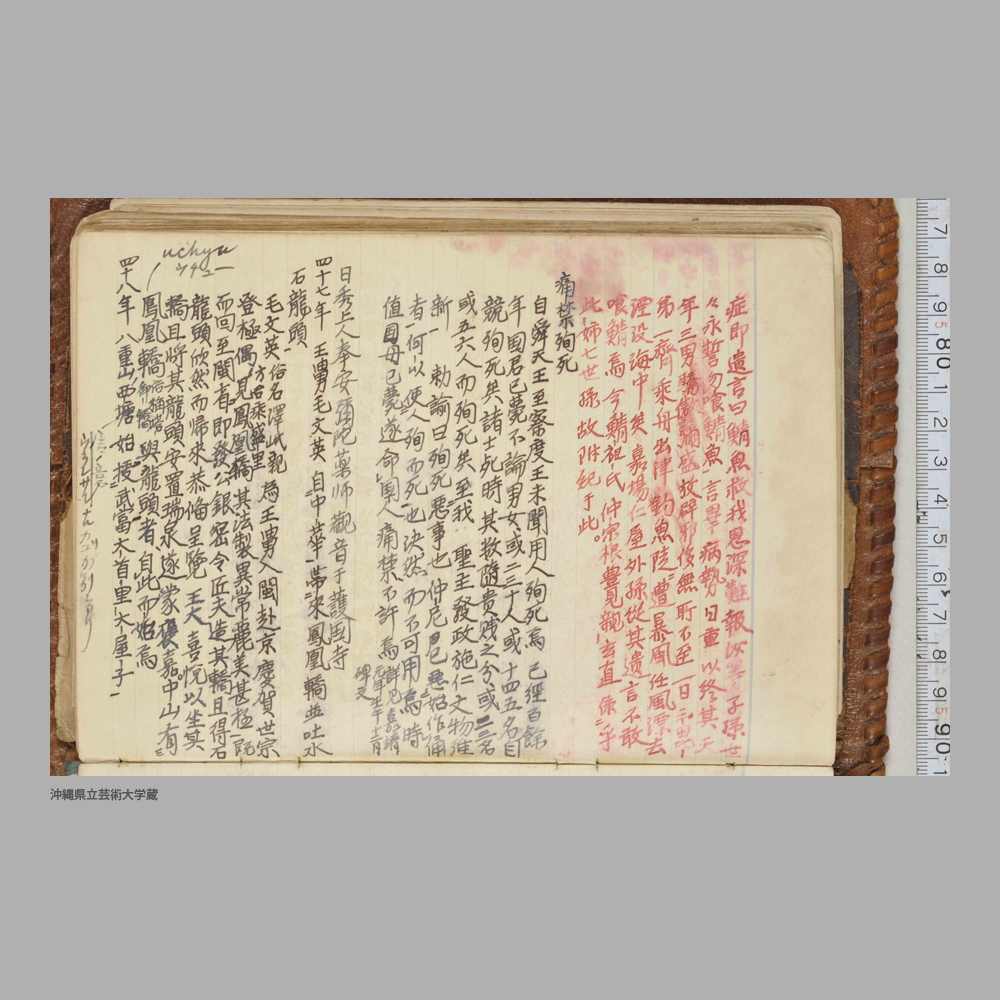 症即遺言曰鯖魚救我恩深難報汝等子孫世
々永誓勿喰鯖魚言畢病勢日重以終其天
年三男驕傲爛盛放辟邪侈無所不至一日二男
第一齊乘舟出津釣魚陡遭暴風任風漂去
湮没海中矣嘉場仁屋外孫從其遺言不敢
喰鯖焉今鯖祖氏仲宗根豊見親玄直係乎
此姉七世孫故附紀于此。
痛禁殉死
自舜天王至察度王未聞用人殉死焉已經百餘
年國君已薨不論男女或二三十人或十四五名自
競殉死矣諸士死時其数隨貴賤之分或二三名
或五六人而殉死矣至我聖主發政施仁文物維
新一勅諭曰殉死惡事也仲尼曰已惡始作俑
者一何以使人殉而死也决然而不可用焉時
值國母已薨遂命國人痛禁不許焉詳見玉陵清
碑文
日秀上人奉安彌陀薬師觀音于護国寺
四十七年 王舅毛文英自中華一帯来鳳凰轎並吐水
石龍頭
毛文英俗名澤岻親方名乘盛里為王舅入閩赴京慶賀世宗
登極偶見鳳凰轎其法製異常麗美甚極一記
而回至閩有即發公銀宻令匠夫造其轎且得石
龍頭欣然而帰來恭偹呈覽王大喜悦以坐其
轎且將其龍頭安置瑞泉遂蒙褒嘉中山有
鳳凰轎俗稱御轎與龍頭者自此而始焉
uchyu
ウチユー
四十八年 八重山西塘始授武富大首里大屋子一